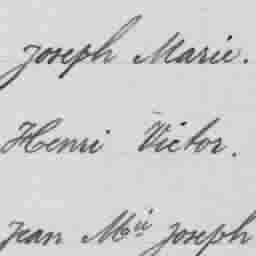 Joseph Marie.
Henri Victor.
Jean Mie Joseph